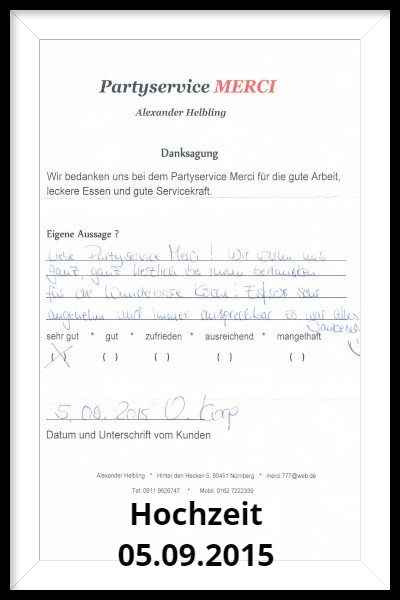 Partyservice MERCI
Alexander Helbling
Danksagung
Wir bedanken uns bei dem Partyservice Merci für die gute Arbeit,
leckere Essen und gute Servicekraft.
Eigene Aussage ?
Liebe Partyservice Merci! Wir wollen uns
ganz, ganz herzlich bei Ihnen bedanken
für die Wunderbare Küche! sehr
angenehm und immer ansprechbar es war alles
Dankesehr
sehr gut * gut * zufrieden * ausreichend * mangelhaft
(X) ( ) ( ) ( ) ( )
5.09.2015
Datum und Unterschrift vom Kunden
Alexander Helbling * Hinter den Hecken 5, 90451 Nürnberg * merci.777@web.de
Tel: 0911 9626747 * Mobil: 0162 7222339
Hochzeit
05.09.2015